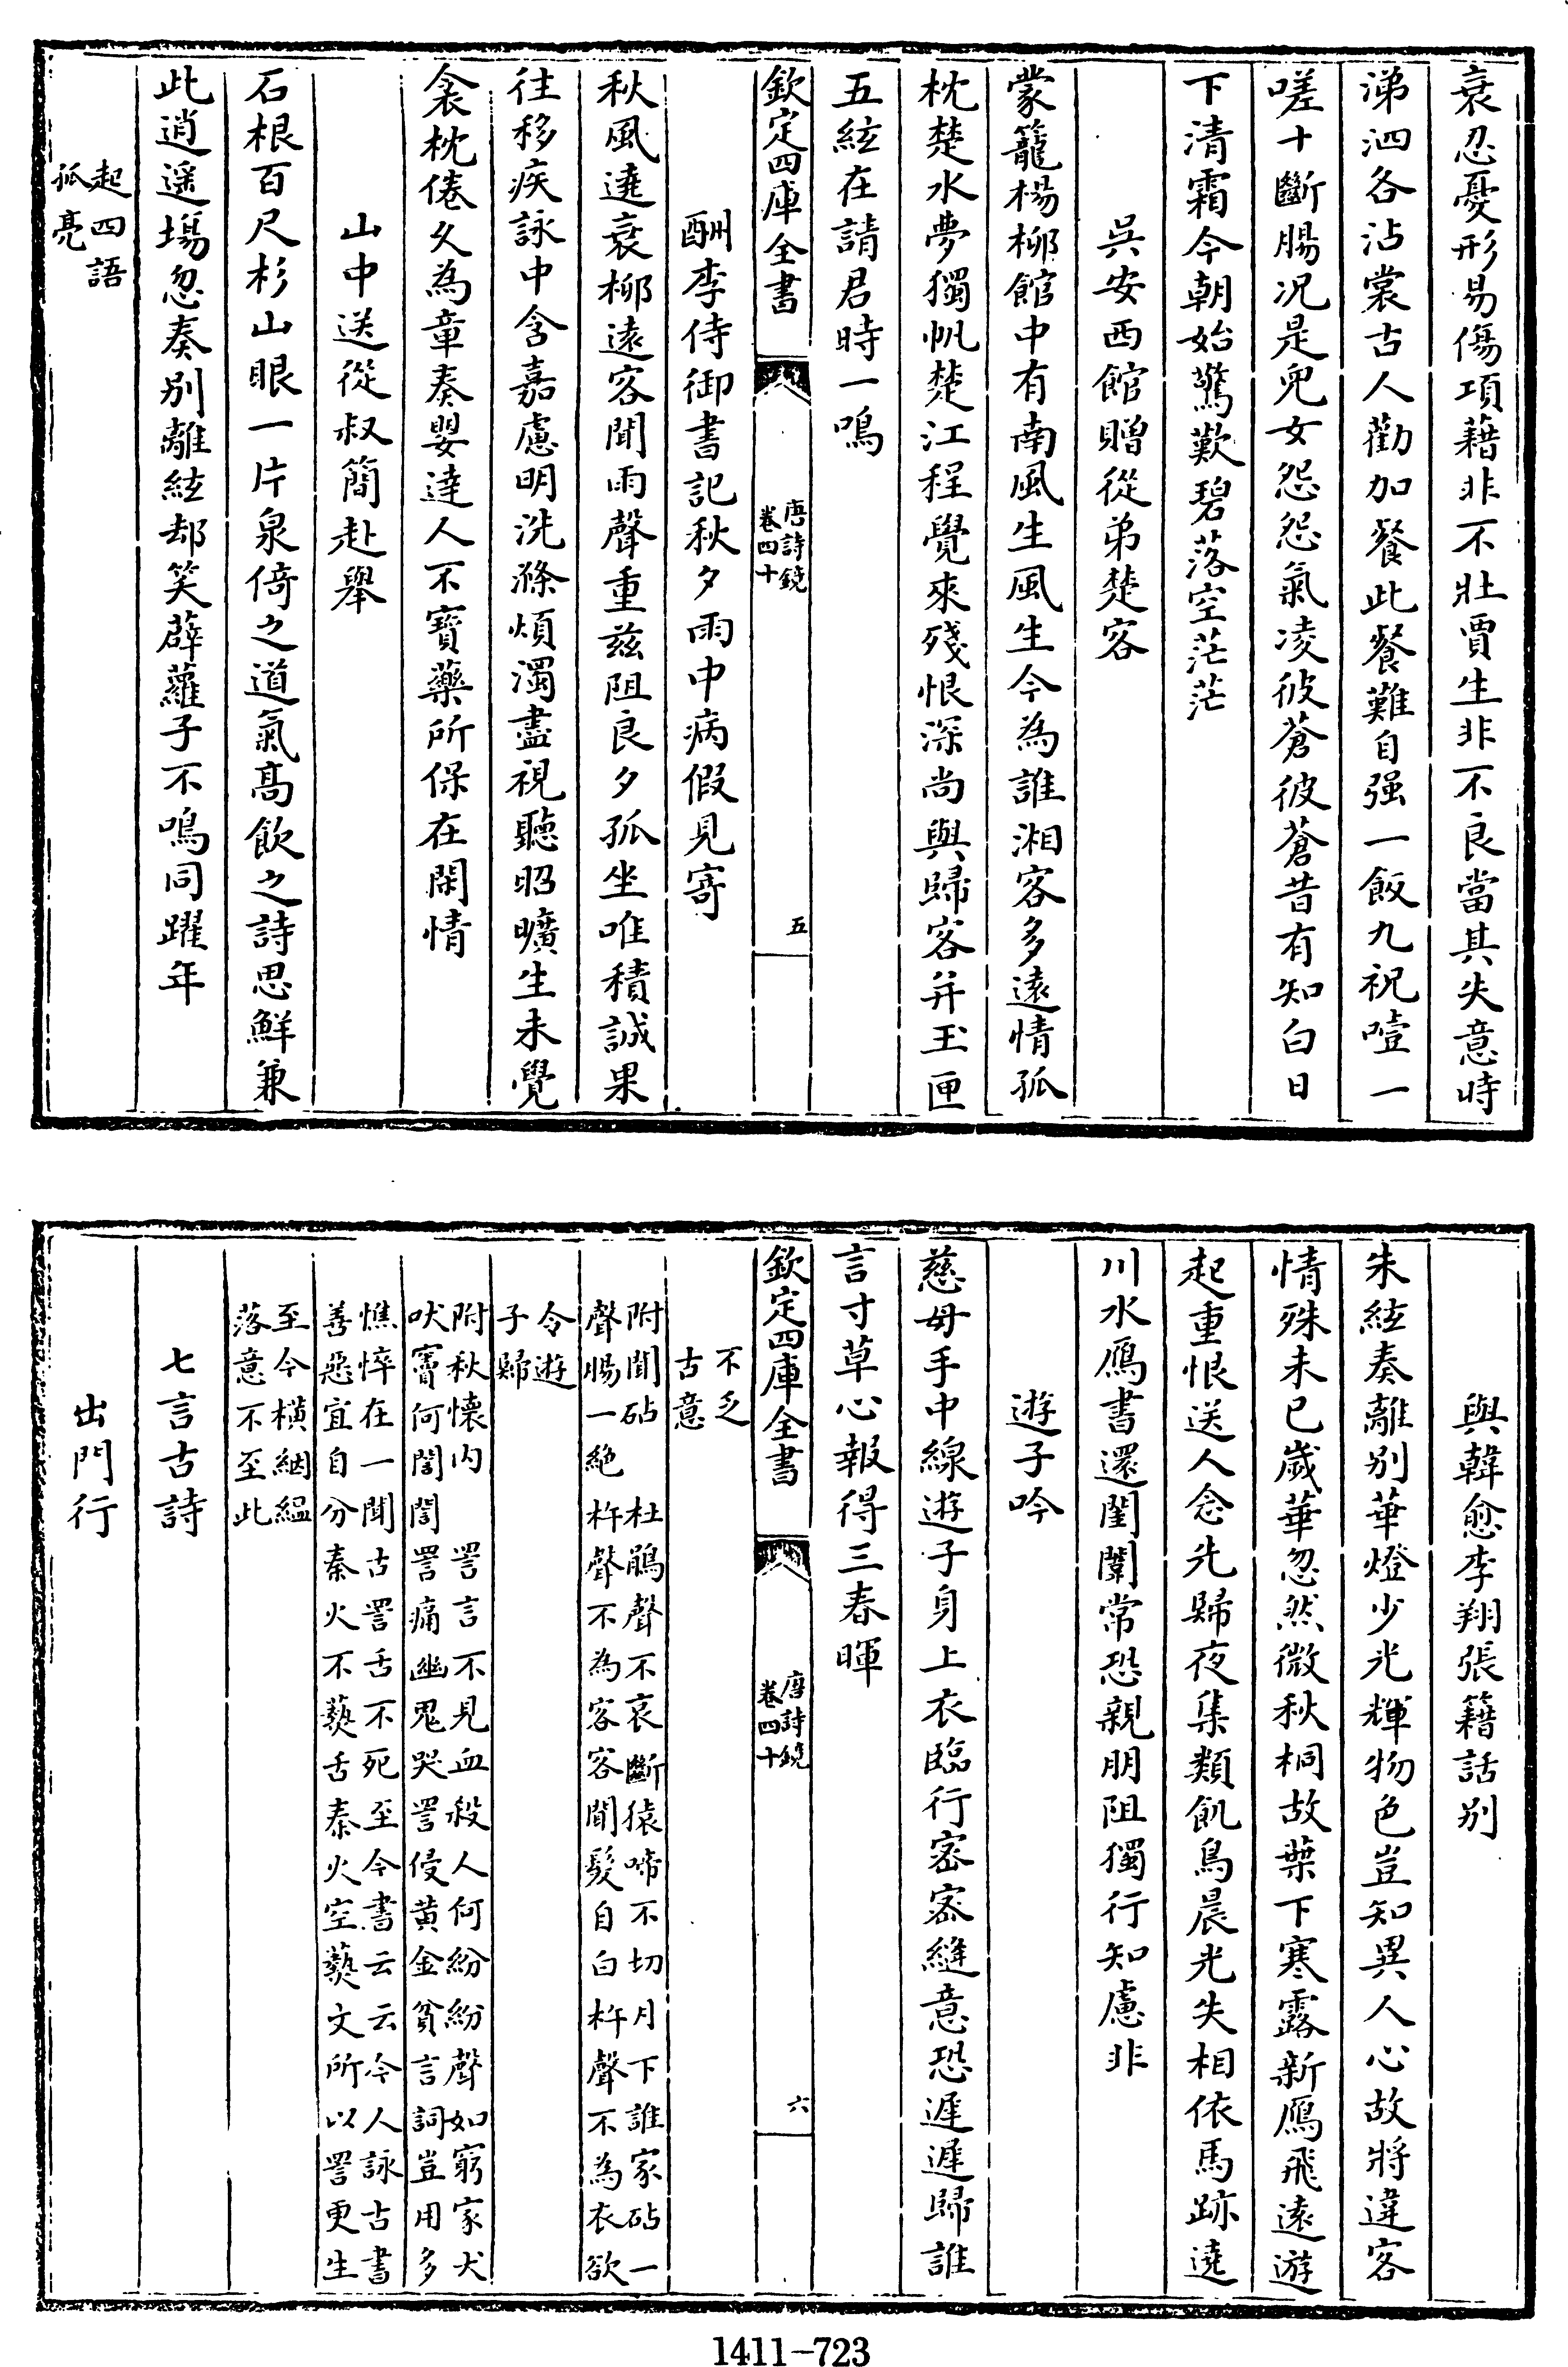 衰忍憂形易傷項藉非不壯賈生非不良當其失意時
涕泗各沾裳古人勸加餐此餐難自强一飯九祝噎一
嗟十斷腸况是兒女怨怨氣凌彼蒼彼蒼昔有知白日
下清霜今朝始驚歎碧落空茫茫
吳安西館贈從弟楚客
蒙籠楊柳館中有南風生風生今為誰湘客多遠情孤
枕楚水夢獨帆楚江程覺來殘恨深尚與歸客并玉匣
五絃在請君時一鳴
欽定四庫全書
唐詩鏡
卷四十
五
酬李侍御書記秋夕雨中病假見寄
秋風遶衰柳遠客聞雨聲重兹阻良夕孤坐唯積誠果
徃移疾詠中含嘉慮明洗滌煩濁盡視聽昭曠生未覺
衾枕倦久為章奏嬰達人不寳藥所保在閑情
山中送從叔簡赴舉
石根百尺杉山眼一片泉倚之道氣髙飲之詩思鮮兼
此逍遥塲忽奏别離絃却笑薜蘿子不鳴同躍年
起四語
孤亮
與韓愈李翔張籍話别
朱絃奏離别華燈少光輝物色豈知異人心故將違客
情殊未已歲華忽然微秋桐故葉下寒露新鴈飛遠遊
起重恨送人念先歸夜集類飢鳥晨光失相依馬跡遶
川水鴈書還閨闈常恐親朋阻獨行知慮非
遊子吟
慈母手中線遊子身上衣臨行宻宻縫意恐遲遲歸誰
言寸草心報得三春暉
欽定四庫全書
唐詩鏡
卷四十
六
不乏
古意
附聞砧 杜鵑聲不哀斷猿啼不切月下誰家砧一
聲腸一絶 杵聲不為客客聞髮自白杵聲不為衣欲
令遊
子歸
附秋懷内 詈言不見血殺人何紛紛聲如窮家犬
吠竇何誾誾詈痛幽鬼哭詈侵黄金貧言詞豈用多
憔悴在一聞古詈舌不死至今書云云今人詠古書
善惡宜自分秦火不爇舌秦火空爇文所以詈更生
至今横絪緼
落意不至此
七言古詩
出門行
1411-723